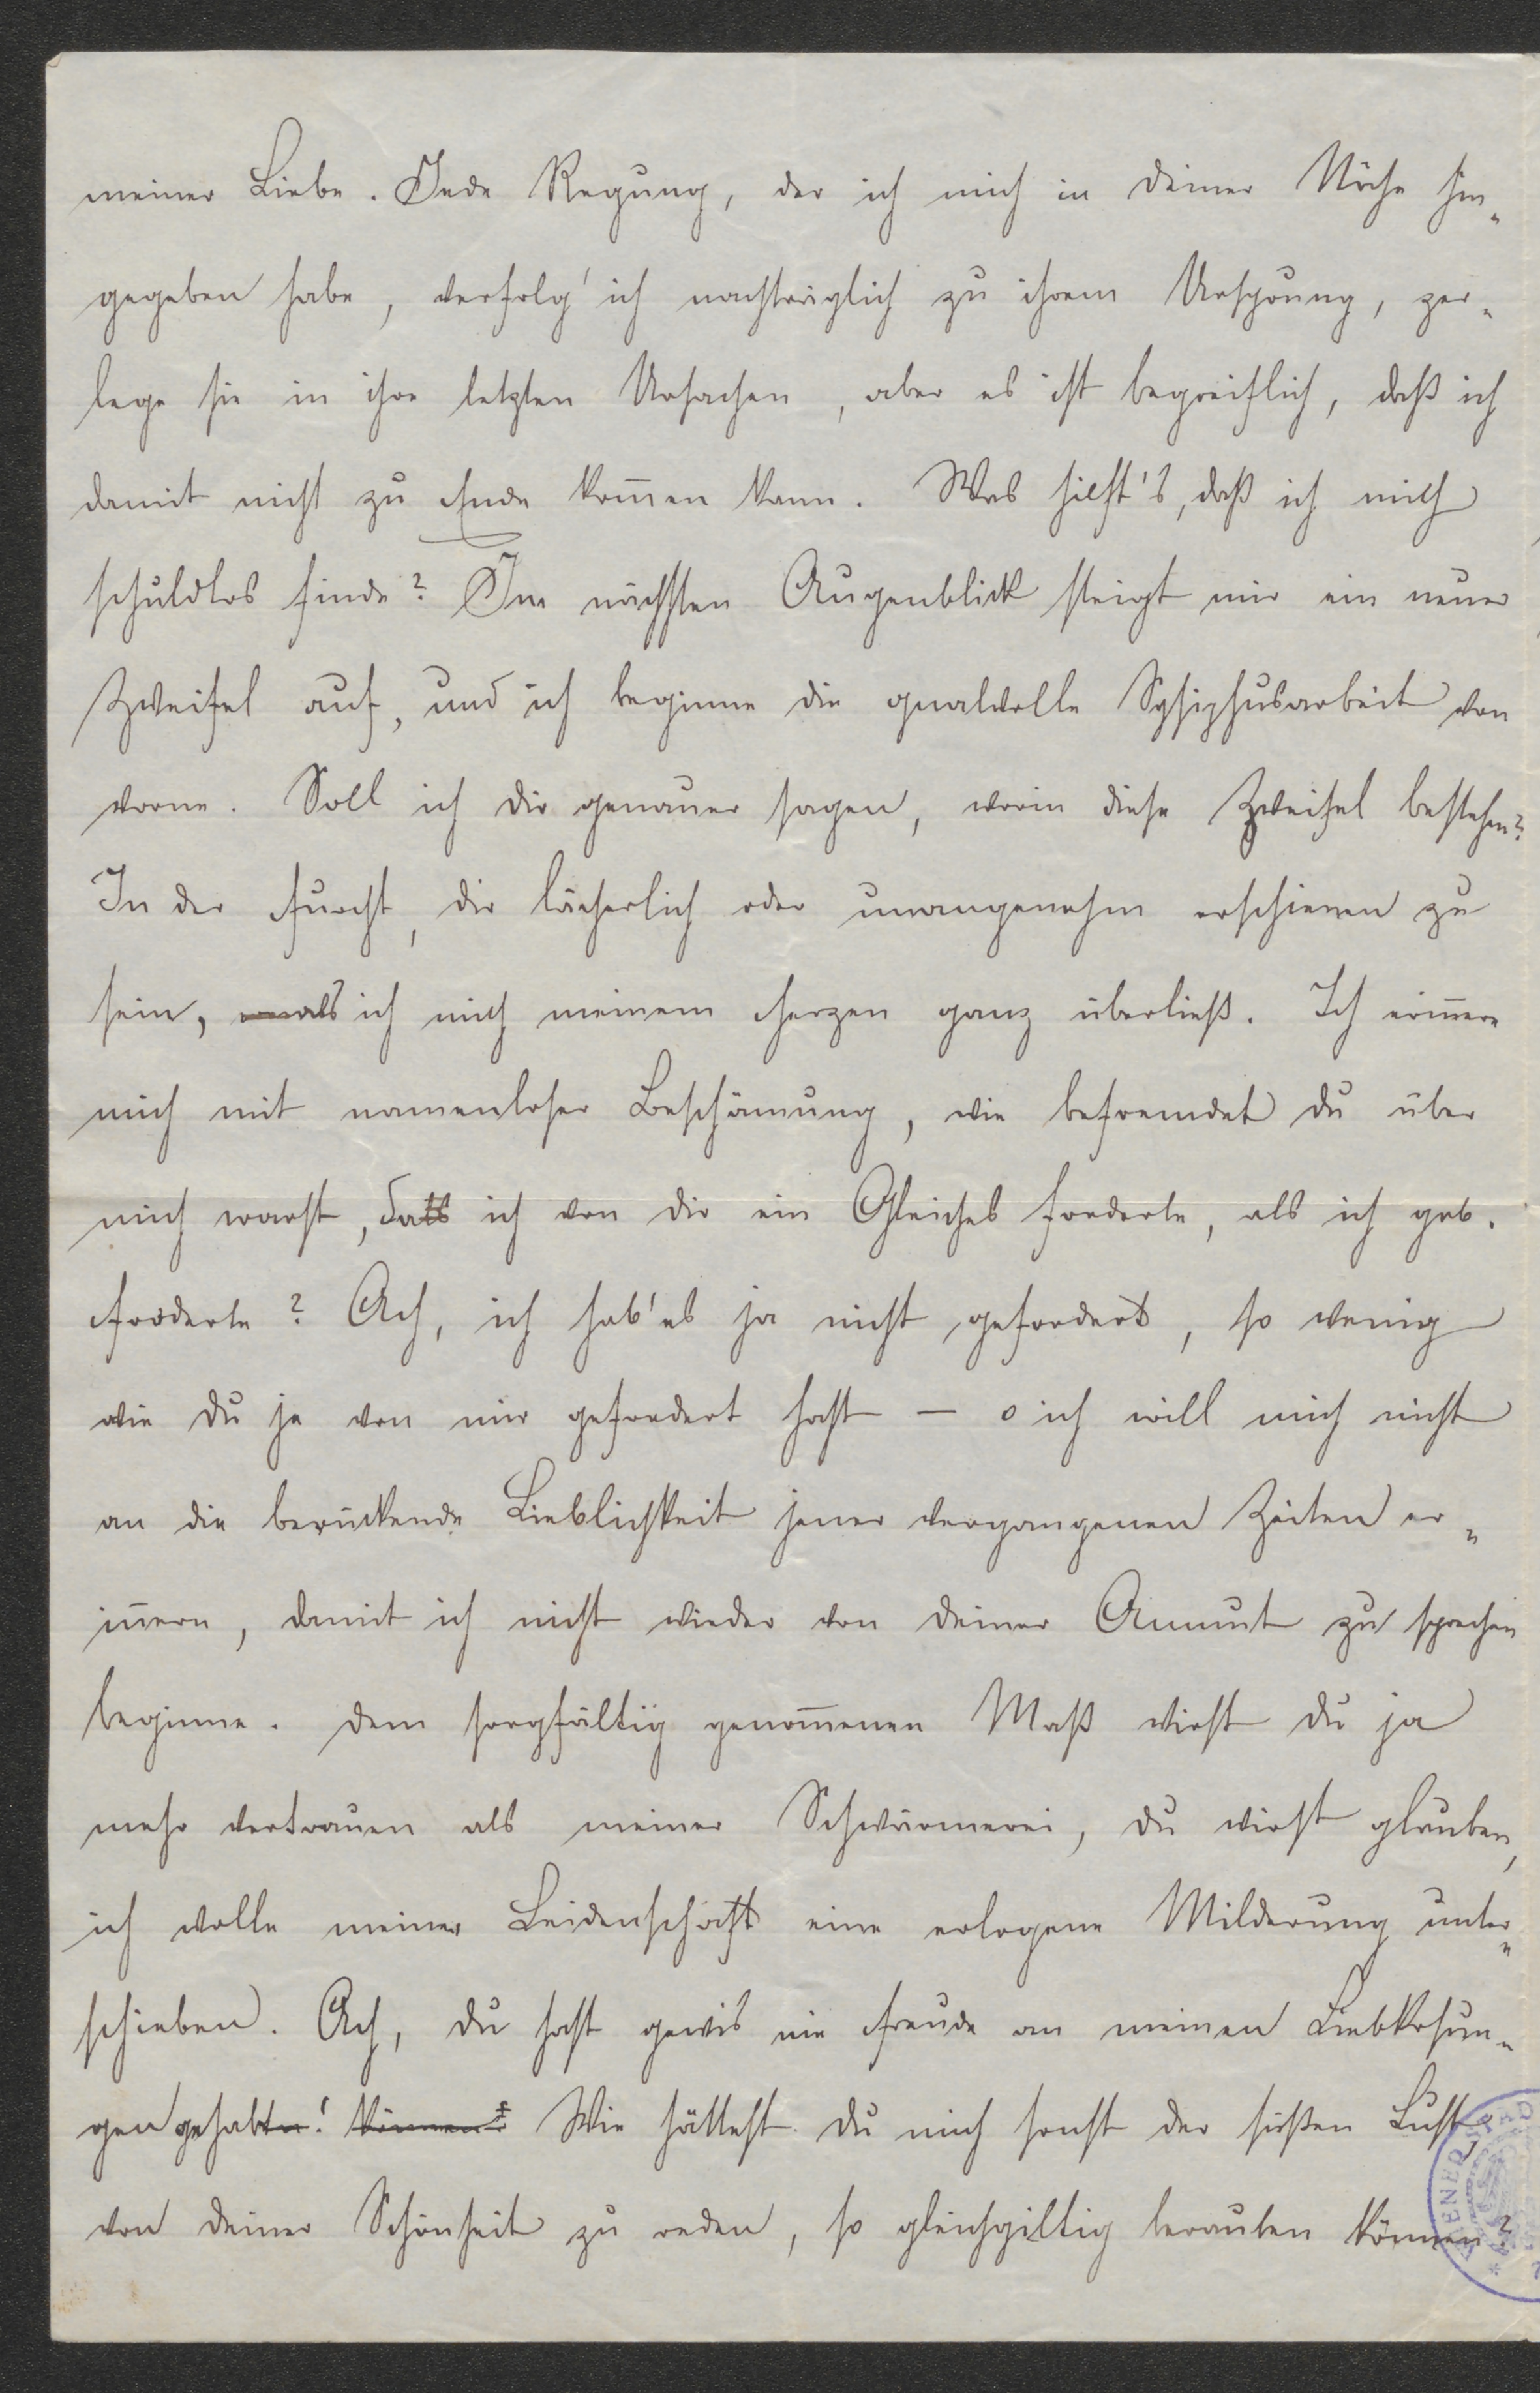 meiner Liebe. Jede Regung, der ich mich in deiner Nähe hin-
gegeben habe, verfolg' ich nachträglich zu ihrem Ursprung, zer-
lege sie in ihre letzten Ursachen, aber es ist begreiflich, daß ich
damit nicht zu Ende kom̅en kann. Was hilft's, daß ich mich
schuldlos finde? Im nächsten Augenblick steigt mir ein neuer
Zweifel auf, und ich beginne die qualvolle Sysiphusarbeit von
vorne. Soll ich dir genauer sagen, worin diese Zweifel bestehn?
In der Furcht, dir lächerlich oder unangenehm erschienen zu
sein, als ich mich meinem Herzen ganz überließ. Ich erin̅ere
mich mit namenloser Beschämung, wie befremdet du über
mich warst, dass ich von dir ein Gleiches forderte, als ich gab.
Forderte? Ach, ich hab' es ja nicht gefordert, so wenig
wie du je von mir gefordert hast – o ich will mich nicht
an die berückende Lieblichkeit jener vergangenen Zeiten er-
in̅ern, damit ich nicht wieder von deiner Anmut zu sprechen
beginne. Dem sorgfältig genom̅enen Maß wirst du ja
mehr vertrauen als meiner Schwärmerei, du wirst glauben,
ich wolle meiner Leidenschaft eine erlogene Milderung unter-
schieben. Ach, du hast gewis nie Freude an meinen Liebkosun-
gen gehabt! können? Wie hättest du mich sonst der süßen Lust,
von deiner Schönheit zu reden, so gleichgiltig berauben können?
WIENER STAD